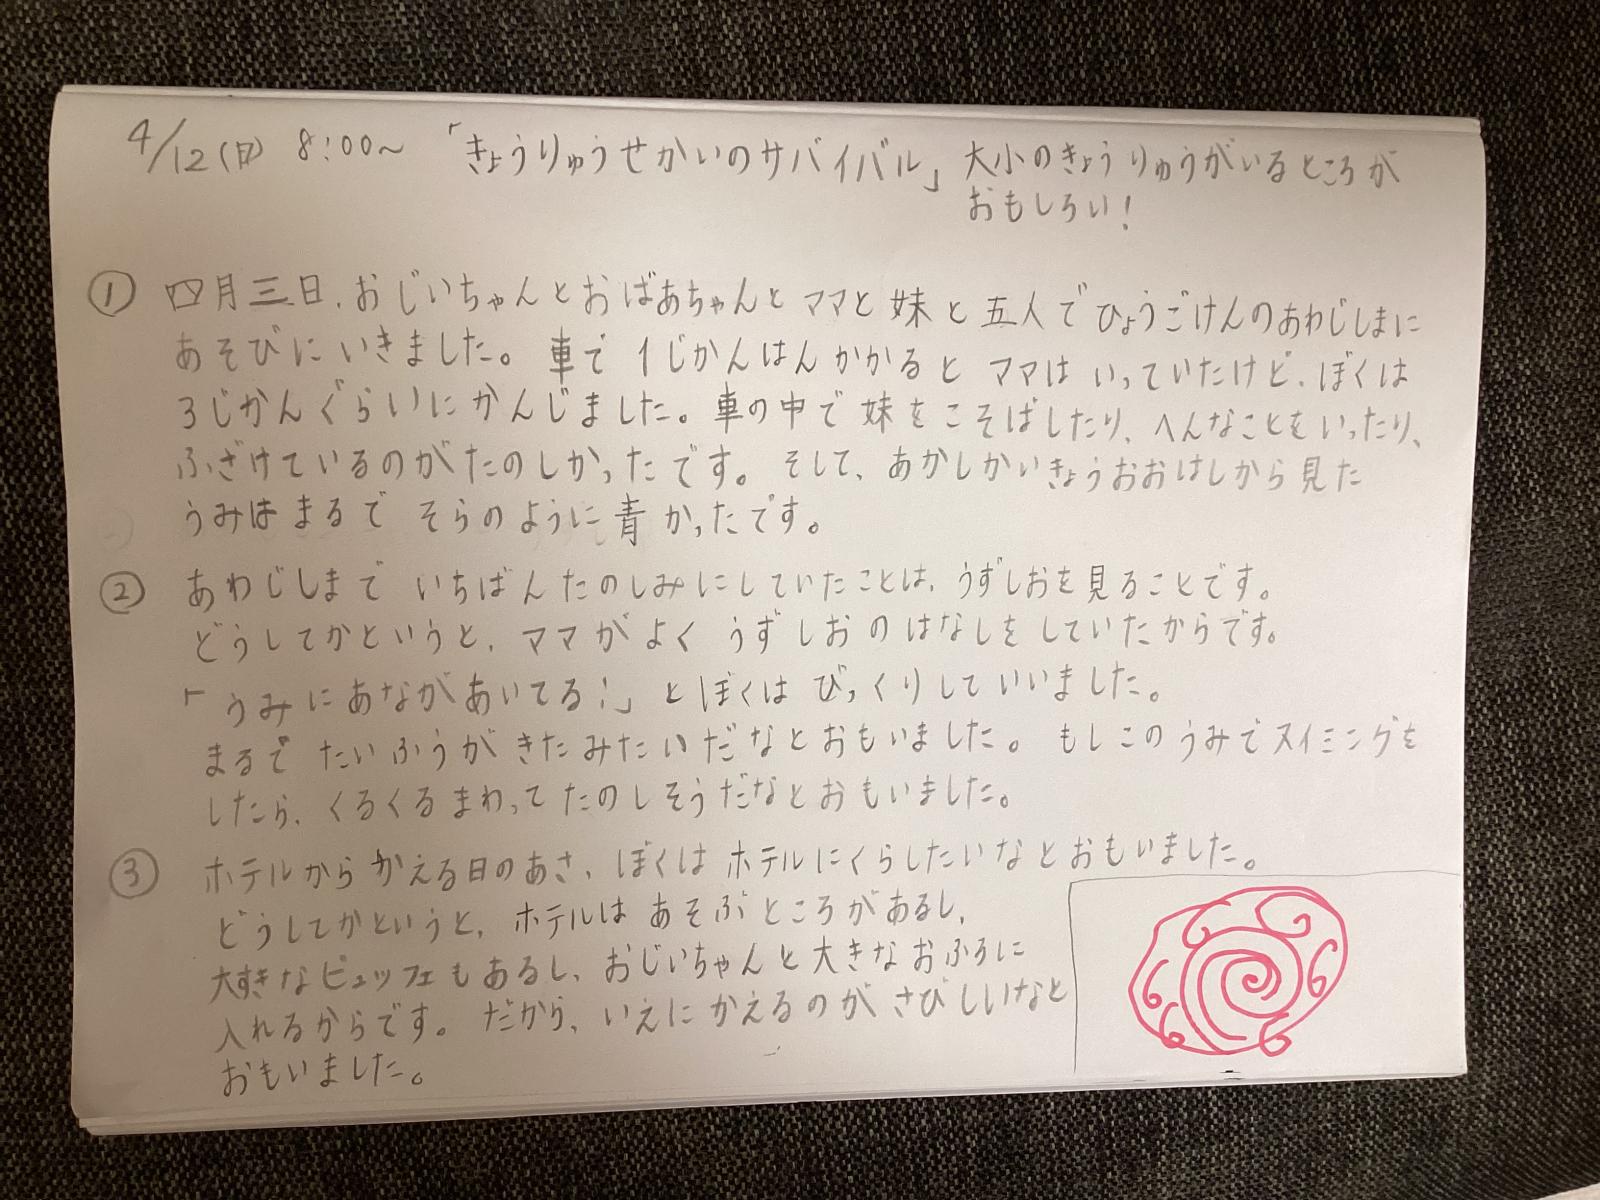 4/12(日) 8:00〜 「きょうりゅうせかいのサバイバル」 大小のきょうりゅうがいるところが
おもしろい!
① 四月三日、おじいちゃんとおばあちゃんとママと妹と五人でひょうごけんのあわじしまに
あそびにいきました。車で1じかんはんかかるとママはいっていたけど、ぼくは
3じかんぐらいにかんじました。車の中で妹をこそばしたり、へんなことをいったり、
ふざけているのがたのしかったです。そして、あかしかいきょうおおはしから見た
うみはまるでそらのように青かったです。
② あわじしまでいちばんたのしみにしていたことは、うずしおを見ることです。
どうしてかというと、ママがよくうずしおのはなしをしていたからです。
「うみにあながあいてる!」とぼくはびっくりしていいました。
まるでたいふうがきたみたいだなとおもいました。もしこのうみでスイミングを
したら、くるくるまわってたのしそうだなとおもいました。
③ ホテルからかえる日のあさ、ぼくはホテルにくらしたいなとおもいました。
どうしてかというと、ホテルはあそぶところがあるし、
大すきなビュッフェもあるし、おじいちゃんと大きなおふろに
入れるからです。だから、いえにかえるのがさびしいなと
おもいました。